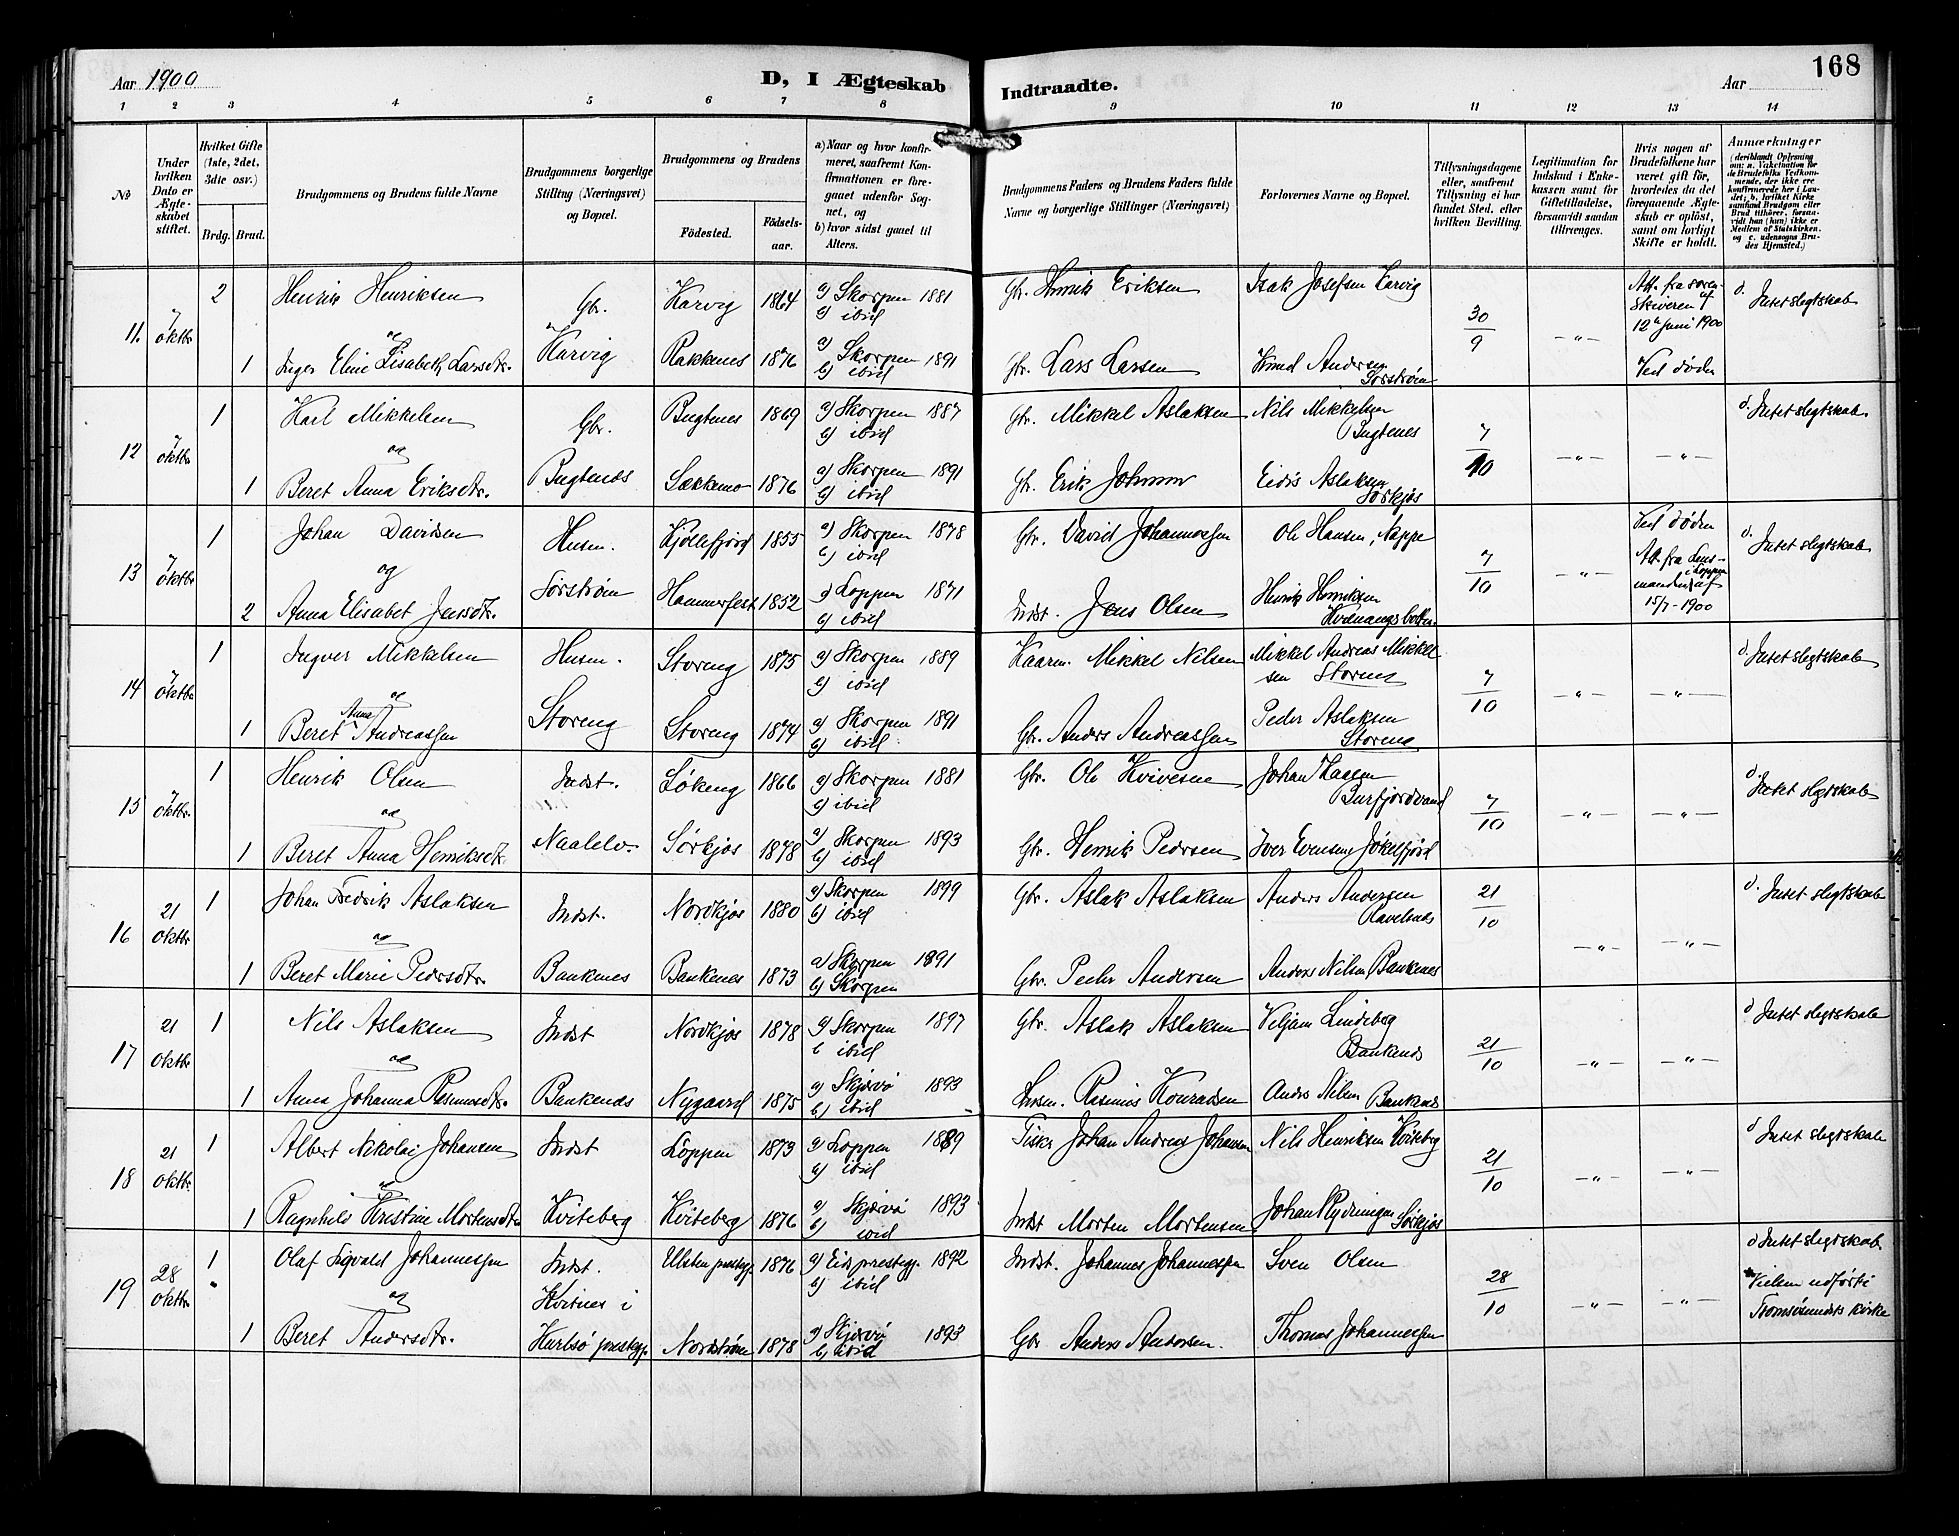 Aar 1900
D, I Ægteskab
Indtraadte.
Aar
168
1 2 3 4 5 6 7 8 9 10 11 12 13 14
No
Under hvilken Dato er Ægteskabet stiftet.
Hvilket Gifte (1ste, 2det, 3die osv.)
Brdg. Brud.
Brudgommens og Brudens fulde Navne
Brudgommens borgerlige Stilling (Næringsvei) og Bopæl.
Brudgommens og Brudens
Fødested.
Fødselsaar.
a) Naar og hvor konfirmeret, saafremt Konfirmationen er foregaaet udenfor Sognet, og
b) hvor sidst gaaet til Alters.
Brudgommens Faders og Brudens Faders fulde Navne og borgerlige Stillinger (Næringsvei)
Forlovernes Navne og Bopæl.
Tillysningsdagene eller, saafremt Tillysning ei har fundet Sted, efter hvilken Bevilling.
Legitimation for Indskud i Enkekassen samt for Giftetilladelse, forsaavidt saadan tiltrænges.
Hvis nogen af Brudefolkene har været gift før, hvorledes da det foregaaende Ægteskab er opløst, samt om lovligt Skifte er holdt.
Anmærkninger
(deriblandt Oplysning om: a. Vakcination for de Brudefolks Vedkommende, der ikke ere konfirmerede her i Landet; b. hvilket Kirkesamfund Brudgom eller Brud tilhører, forsaavidt han (hun) ikke er Medlem af Statskirken, og c. udensogns Brudes Hjemsted.)
11. 7 oktbr 2 Henrik Henriksen Gbr. Karvig 1864 a) Skorpen 1881 b) ibid Gbr. Henrik Eriksen Isak Josefsen Karvig 30/9 —"— Att. fra sorenskriveren af 12te Juni 1900 d. Intet slegtskab
og
1 Inger Eline Lisabeth Larsdtr. Karvig Rakkenes 1876 a) Skorpen 1891 b) ibid Gbr. Lars Larsen Knud Andersen Sørstrøm Ved døden
12 7 oktbr 1 Karl Mikkelsen Gbr. Bugtenes 1869 a) Skorpen 1887 b) ibid Gbr. Mikkel Aslaksen Nils Mikkelsen Bugtenes 7/10 —"— —"— d. Intet slegtskab
og
1 Beret Anna Eriksdtr. Bugtenes Sækkemo 1876 a) Skorpen 1891 b) ibid Gbr. Erik Johnsen Aslaksen Sørkjos
13 7 oktbr 1 Johan Davidsen Husm. Kjøllefjord 1855 a) Skorpen 1878 b) ibid Gbr. David Johannessen Ole Hansen, Nappe 7/10 —"— Ved døden Att. fra Lensmanden i Loppen af 15/7-1900 d. Intet slegtskab
og
2 Anna Elisabet Jensdtr. Sørstrøm Hammerfest 1852 a) Loppen 1871 b) ibid Indst. Jens Olsen Henrik Henriksen Kvænangsbotten
14 7 oktbr 1 Ingver Mikkelsen Husm. Storeng 1875 a) Skorpen 1889 b) ibid Mikkel Nilsen Mikkel Andreas Mikkelsen Storeng 7/10 —"— —"— d. Intet slegtskab
og
1 Beret Anna Andreassen Storeng Storeng 1874 a) Skorpen 1891 b) ibid Gbr. Anders Andreassen Peder Aslaksen Storeng
15 7 oktbr. 1 Henrik Olsen Indst. Løkeng 1866 a) Skorpen 1881 b) ibid Gbr. Ole Kvivesen Johan Burfjordvand 7/10 —"— —"— d. Intet slegtskab
og
1 Beret Anna Henriksdtr. Naalelv. Sørkjos 1878 a) Skorpen 1893 b) ibid Gbr. Henrik Pedersen Iver Evensen Jøkelfjord
16 21 oktbr 1 Johan Fredrik Aslaksen Indst. Nordkjos 1880 a) Skorpen 1899 b) ibid Gbr. Aslak Aslaksen Anders Andersen 21/10 —"— —"— d. Intet slegtskab
og
1 Beret Marie Pedersdtr. Bankenes Bankenes 1873 a) Skorpen 1891 b) Skorpen Gbr. Peder Andersen Anders Nilsen Bankenes
17 21 oktbr 1 Nils Aslaksen Indst Nordkjos 1878 a) Skorpen 1897 b ibid Gbr. Aslak Aslaksen Veljam Lindeberg Bankenes 21/10 —"— —"— d Intet slegtskab
og
1 Anna Johanna Rasmusdtr. Bankenes Nygaard 1875 a) Skjærvø 1893 b) ibid Rasmus Konradsen Anders Nilsen Bankenes
18 21 oktbr. 1 Albert Nikolai Johansen Indst Loppen 1873 a) Loppen 1889 b) ibid Fisker Johan Andreas Johansen Nils Henriksen Kviteberg 21/10 —"— —"— d Intet slegtskab
og
1 Ragnhild Kristine Mortensdtr Kviteberg Kviteberg 1876 a) Skjærvø 1893 b) ibid Indst Morten Mortensen Johan Rydningen Sørkjos
19 28 oktbr 1 Olaf Sigvald Johannessen Indst. Ulsten prestegj. 1876 a) Eids prestegj. 1892 b) ibid Indst. Johannes Johannessen Sven Olsen 28/10 —"— —"— d Intet slegtskab
og Kvitnes i Vielsen udført i Tromsøsundets kirke
1 Beret Andersdtr. Hurtsø prestegj. Nordstrøm 1878 a) Skjærvø 1893 b) ibid Gbr Anders Andersen. Thomas Johannessen